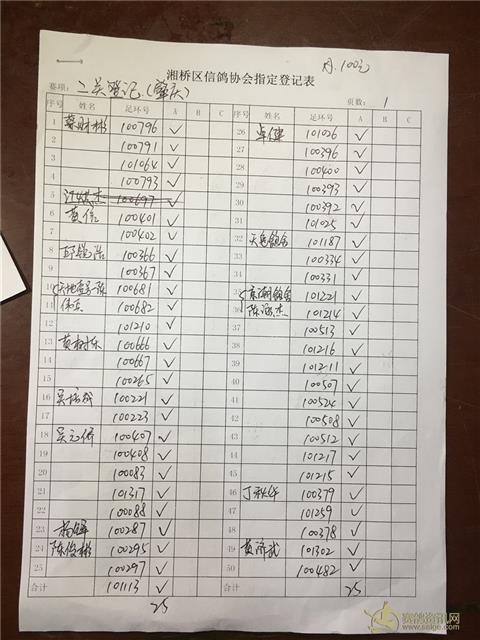 湘桥区信鸽协会指定登记表
赛项: 二关登记(肇庆) 页数: 1
序号 姓名 足环号 A B C 序号 姓名 足环号 A B C
1 蔡财彬 100796 ✓ 26 卓健 101026 ✓
2 100791 ✓ 27 100396 ✓
3 101064 ✓ 28 100400 ✓
4 100793 ✓ 29 100393 ✓
5 100697 ✓ 30 100392 ✓
6 黄伟 100401 ✓ 31 101025 ✓
7 100402 ✓ 32 101187 ✓
8 100366 ✓ 33 100334 ✓
9 100367 ✓ 34 100331 ✓
10 100681 ✓ 35 101221 ✓
11 100682 ✓ 36 101214 ✓
12 101210 ✓ 37 100513 ✓
13 100666 ✓ 38 101216 ✓
14 100667 ✓ 39 101211 ✓
15 100265 ✓ 40 100507 ✓
16 100221 ✓ 41 100524 ✓
17 100223 ✓ 42 100508 ✓
18 吴元侨 100407 ✓ 43 100512 ✓
19 100408 ✓ 44 101217 ✓
20 100083 ✓ 45 101215 ✓
21 101317 ✓ 46 丁秋华 100379 ✓
22 100088 ✓ 47 101259 ✓
23 100287 ✓ 48 100378 ✓
24 陈俊彬 100295 ✓ 49 黄济武 101302 ✓
25 100297 ✓ 50 100482 ✓
合计 101113 ✓ 合计 25
25
赛鸽资讯网
www.saige.com